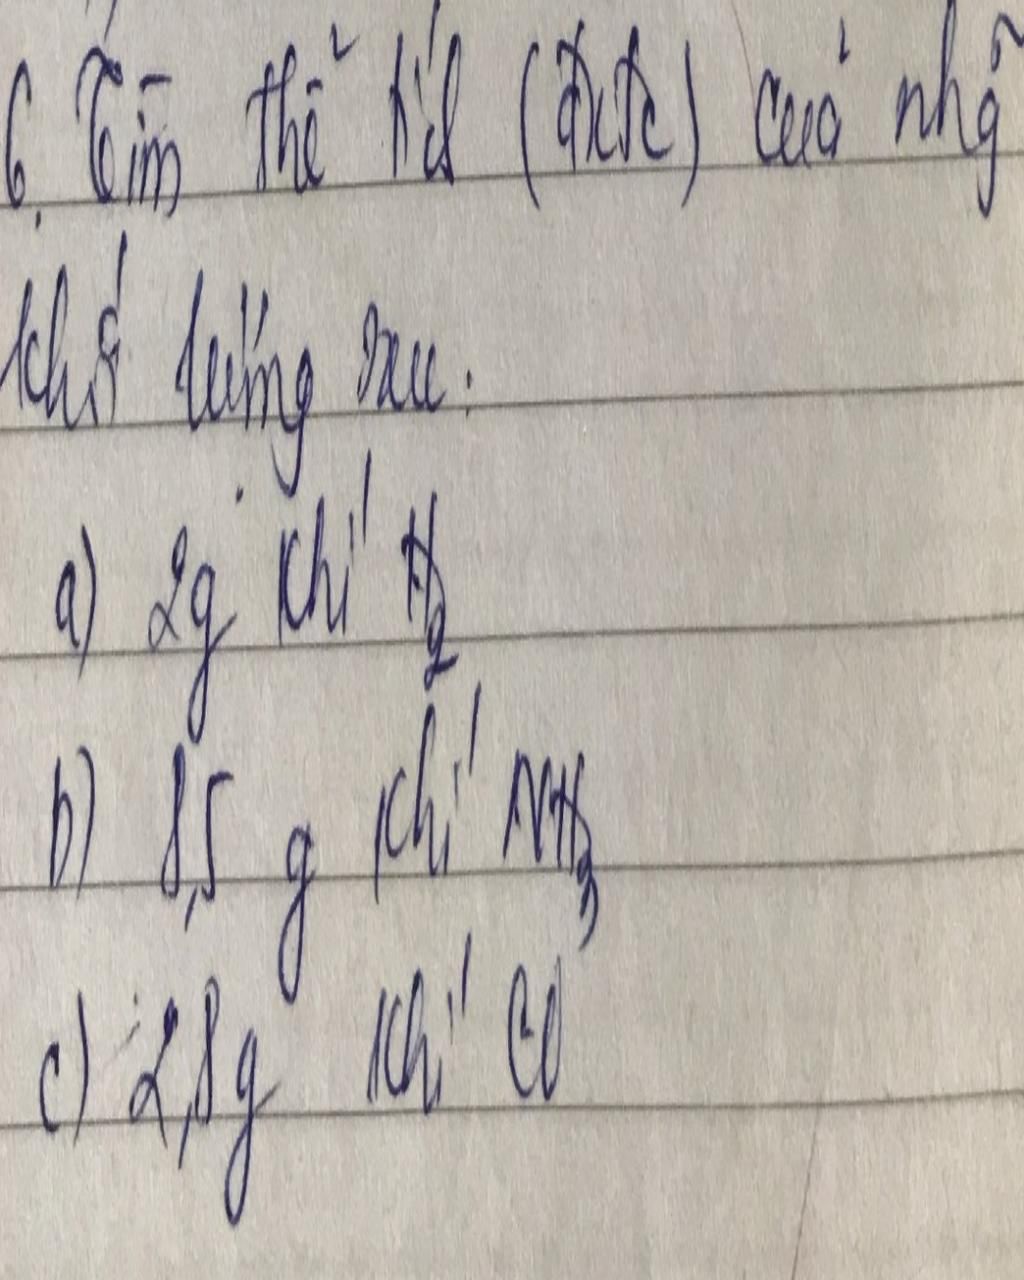 6. Tìm thể tích (đktc) của
khối lượng sau:
a) 2g khí H₂
b) 8,5 g khí NH₃
c) 2,8g khí CO